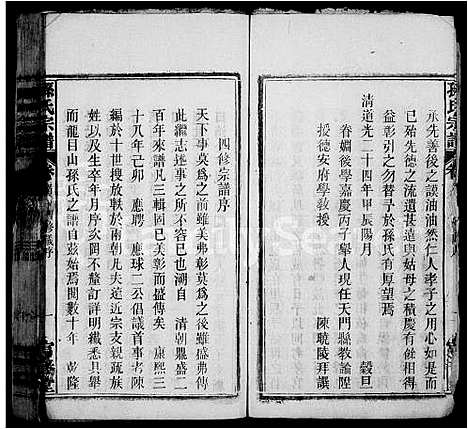 孫氏宗譜
承先善後之謨油油然仁人孝子之用心如見而
已殆先德之流遺甚遠與姑母之積慶有以
益彰引之勿替予於孫氏有厚望焉
清道光二十四年甲辰陽月 穀旦
眷姻後學嘉慶丙子舉人現任天門縣教諭陞
授德安府學教授 陳曉陵拜譔
四修宗譜序
天下事莫為之前雖美弗彰莫為之後雖盛弗傳
此繼志述事之不容已也溯自 清朝鼎盛二
百年來譜凡三修固已美彰而盛傳矣 康熙三
十八年己卯 應聘 應球二公倡議首事者陳
編於十世搜放軼於兩朝凡夫遠近宗支親疏族
姓以及生卒年月序次罔不釐訂詳明纖悉具舉
而龍目山孫氏之譜自茲始焉閱數十年 乾隆
孫氏宗譜